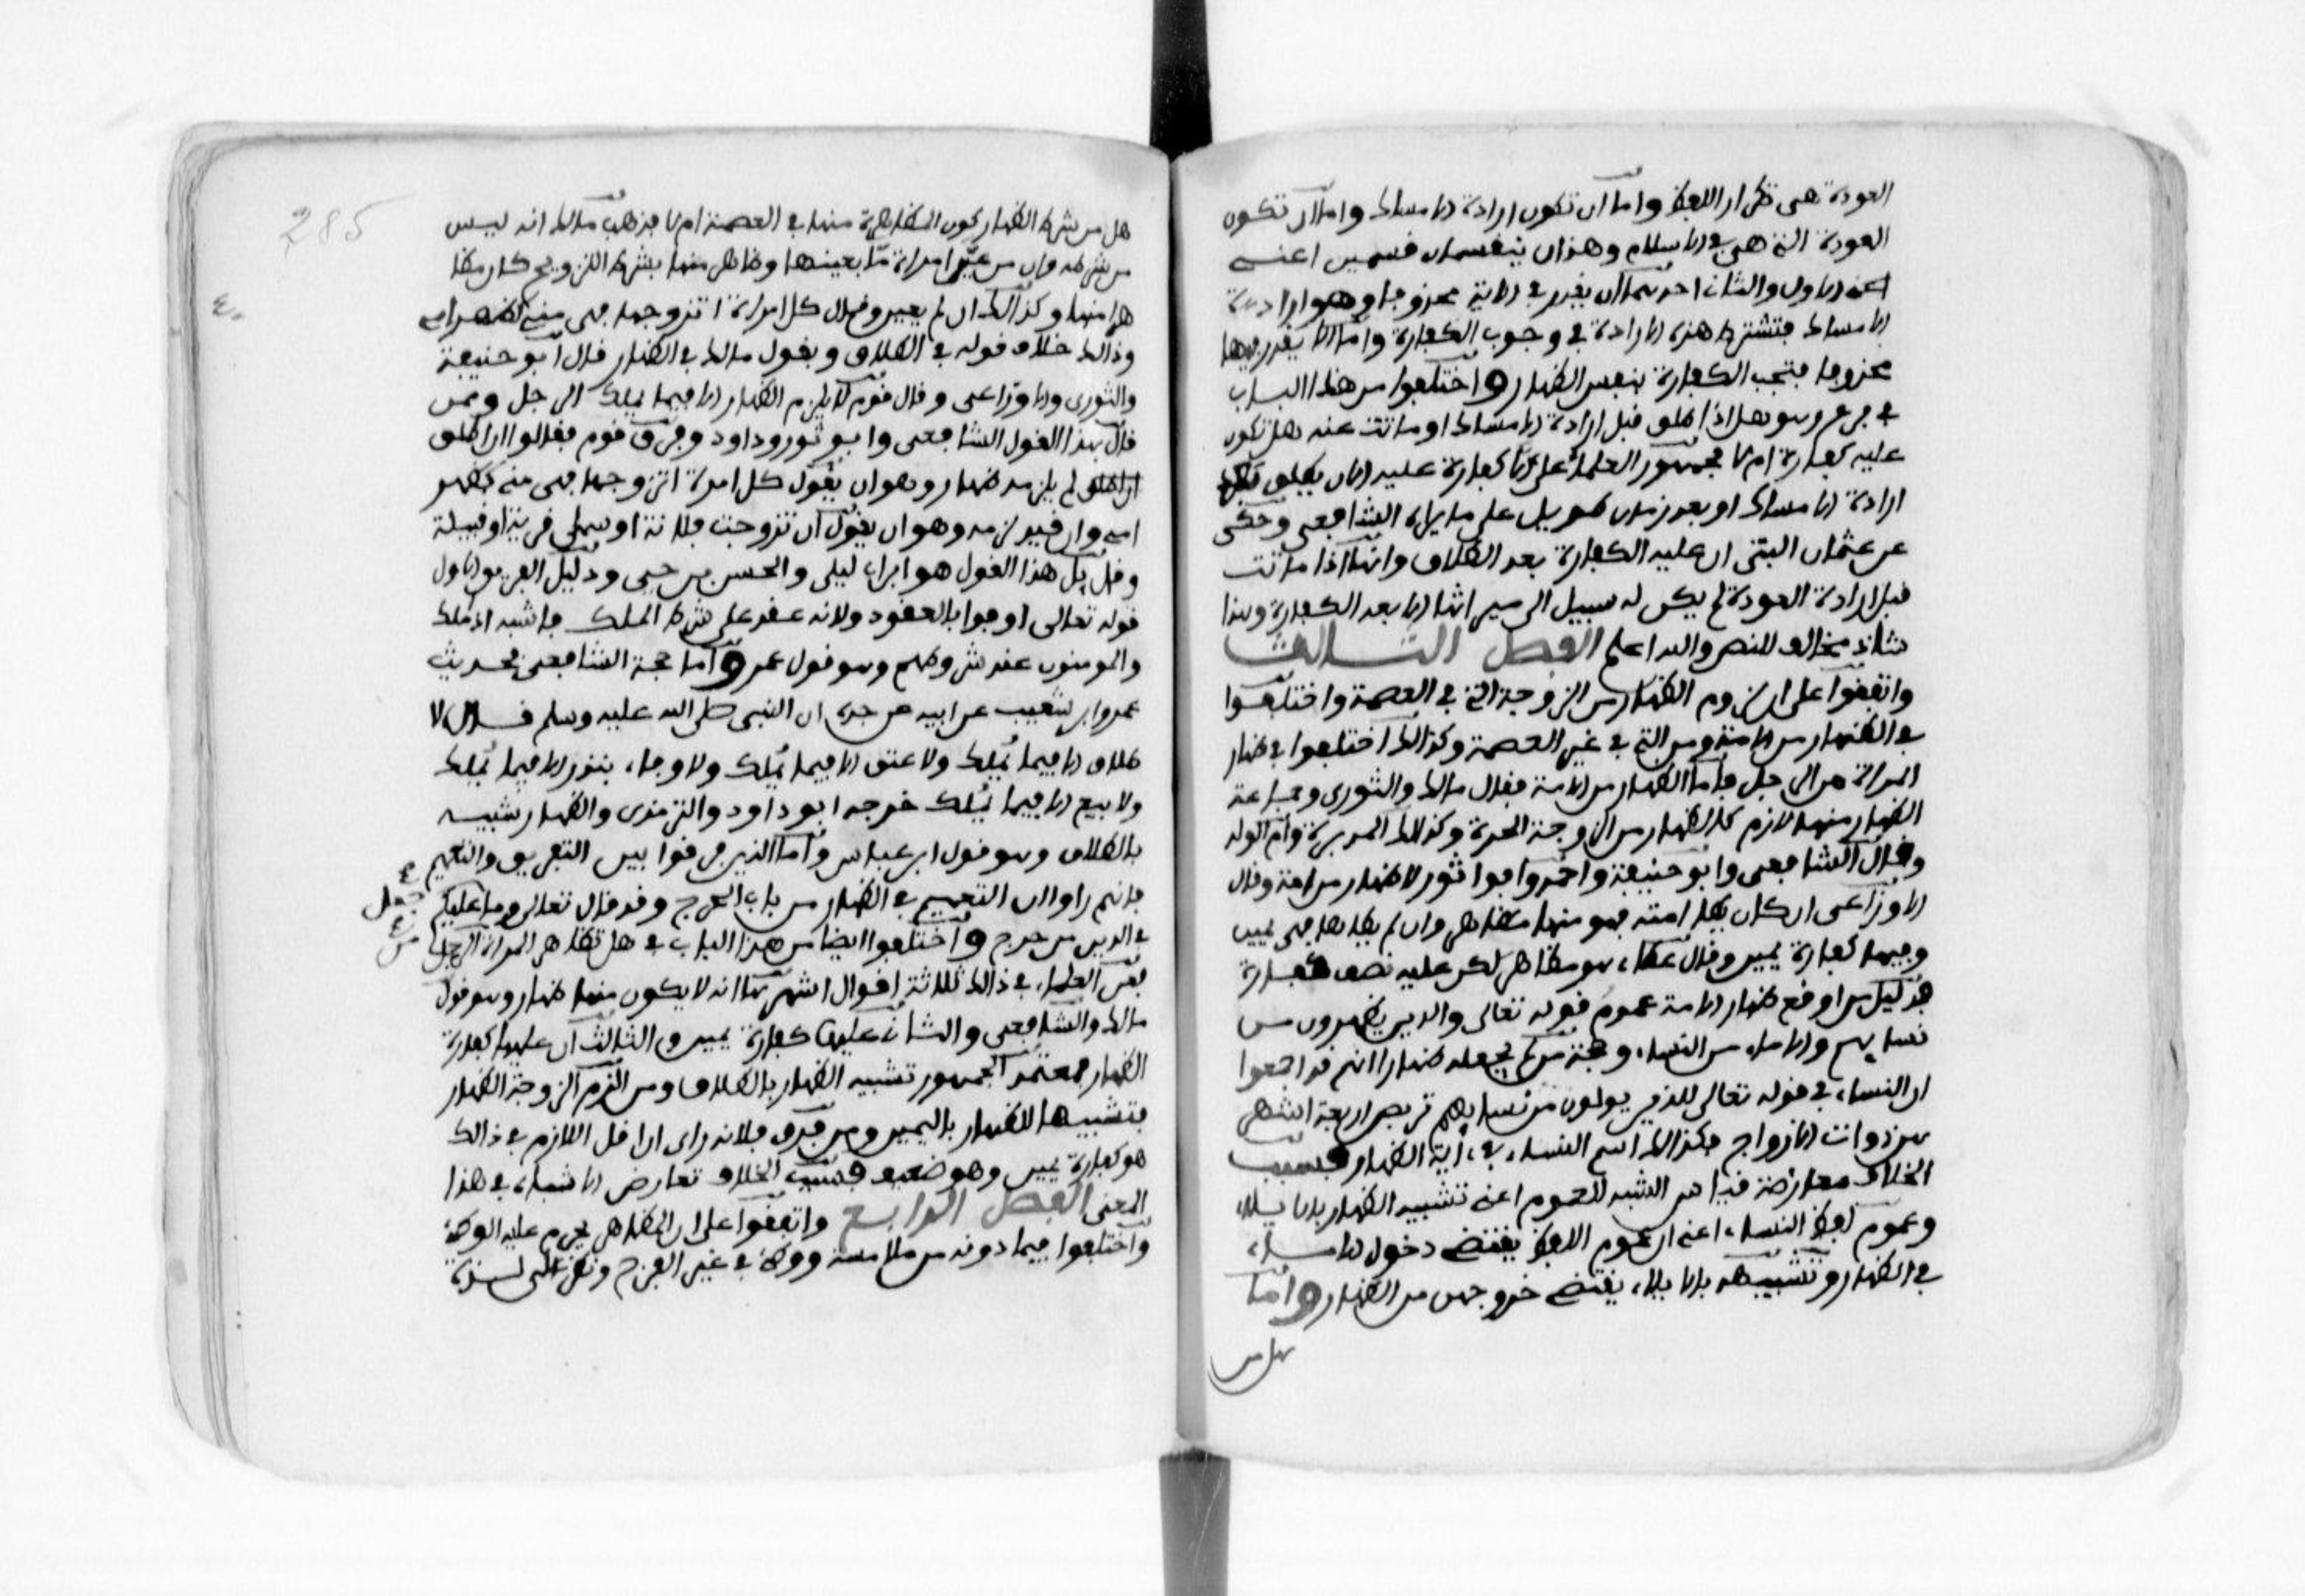 العودة هى تكرار اللفظ واما ان تكون ارادة الامساك واما ان تكون
العودة التى هى فى الاسلام وهذان ينقسمان قسمين اعنى
اعنى الاول والثانى احدهما ان يقدر فى الاية محذوفا وهو ارادة
الامساك فتشترط هذه الارادة فى وجوب الكفارة واما الا يقدر فيها
محذوفا فتجب الكفارة بنفس الظهار واختلفوا من هذا الباب
فى فرع وهو هل اذا طلق قبل ارادة الامساك او ماتت عنه هل تكون
عليه كفارة ام لا فجمهور العلماء على الا كفارة عليه الا ان يطلق
ارادة الامساك او بعد زمان طويل على ما يراه الشافعى وحكى
عن عثمان البتى ان عليه الكفارة بعد الطلاق وانها اذا ماتت
قبل ارادة العودة لم يكن له سبيل الى ميراثها الا بعد الكفارة وهذا
شاذ مخالف للنص والله اعلم الفصل الثالث
واتفقوا على لزوم الظهار من الزوجة التى فى العصمة واختلفوا
فى الظهار من الامة ومن التى فى غير العصمة وكذالك اختلفوا فى ظهار
المراة من الرجل فاما الظهار من الامة فقال مالك والثورى وجماعة
الظهار منها لازم كالظهار من الزوجة الحرة وكذالك المدبرة وام الولد
وقال الشافعى وابو حنيفة واحمد وابو ثور لا ظهار من امة وقال
الاوزاعى ان كان يطا امته فهو منها مظاهر وان لم يطاها فهى يمين
وفيها كفارة يمين وقال عطاء هو مظاهر لكن عليه نصف كفارة
فدليل من اوقع ظهار الامة عموم قوله تعالى والذين يظهرون من
نسايهم والاماء من النساء وحجة من لم يجعله ظهارا انهم قد اجمعوا
ان النساء فى قوله تعالى للذين يولون من نسايهم تربص اربعة اشهر
هن ذوات الازواج فكذالك اسم النساء فى اية الظهار فسبب
الخلاف معارضة قياس الشبه للعموم اعنى تشبيه الظهار بالايلاء
وعموم لفظ النساء اعنى ان عموم اللفظ يقتضى دخول الاماء
فى الظهار وتشبيهه بالايلاء يقتضى خروجهن من الظهار واما
هل من
285
هل من شرط الظهار كون المظاهرة منها فى العصمة ام لا فمذهب مالك انه ليس
من شرطه وان من عيّن امراة ما بعينها وظاهر منها بشرط التزويج كان مظا
هرا منها وكذالك ان لم يعين وقال كل امراة اتزوجها فهى منى كظهر امى
وذالك خلاف قوله فى الطلاق وبقول مالك فى الظهار قال ابو حنيفة
والثورى والاوزاعى وقال قوم لا يلزم الظهار الا فيما يملك الرجل وممن
قال بهذا القول الشافعى وابو ثور وداود وفرق قوم فقالوا ان اطلق
لم يلزمه ظهار وهو ان يقول كل امراة اتزوجها فهى منى كظهر
امى وان قيد لزمه وهو ان يقول ان تزوجت فلانة او سمى قرية او قبيلة
وقال هذا القول هو ابن ابى ليلى والحسن بن حيى ودليل الفريق الاول
قوله تعالى اوفوا بالعقود ولانه عقد على شرط الملك فاشبه اذا ملك
والمومنون عند شروطهم وهو قول عمر واما حجة الشافعى فحديث
عمرو ابن شعيب عن ابيه عن جده ان النبى صلى الله عليه وسلم قال لا
طلاق الا فيما يملك ولا عتق الا فيما يملك ولا وفاء بنذر الا فيما يملك
ولا بيع الا فيما يملك خرجه ابو داود والترمذى والظهار شبيه
بالطلاق وهو قول ابن عباس واما الذين فرقوا بين التفريق والتعميم
فانهم راوا ان التعميم فى الظهار من باب الحرج وقد قال تعالى وما جعل عليكم
فى الدين من حرج واختلفوا ايضا من هذا الباب فى هل تظاهر المراة من الرجل
فعن العلماء فى ذالك ثلاثة اقوال اشهرها انه لا يكون منها ظهار وهو قول
مالك والشافعى والثانى عليها كفارة يمين والثالث ان عليها كفارة
الظهار فمعتمد الجمهور تشبيه الظهار بالطلاق ومن الزم الزوجة الظهار
فتشبيها للظهار باليمين ومن فرق فلانه راى ان اقل اللازم فى ذالك
هو كفارة يمين وهو ضعيف فسبب الخلاف تعارض الاشباه فى هذا
المعنى الفصل الرابع واتفقوا على ان المظاهر يحرم عليه الوطء
واختلفوا فيما دونه من ملامسة ووطء فى غير الفرج ونظر